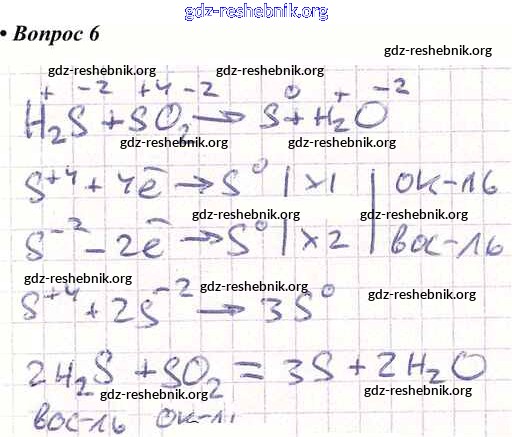 gdz-reshebnik.org
• Вопрос 6
gdz-reshebnik.org
gdz-reshebnik.org gdz-reshebnik.org
+ -2 +4 -2 0 + -2
H₂S + SO₂ → S + H₂O
gdz-reshebnik.org gdz-reshebnik.org
S⁺⁴ + 4ē → S⁰ | ×1 | ок-ль
gdz-reshebnik.org gdz-reshebnik.org
S⁻² - 2ē → S⁰ | ×2 | вос-ль
gdz-reshebnik.org gdz-reshebnik.org gdz-reshebnik.org
S⁺⁴ + 2S⁻² → 3S⁰
2H₂S + SO₂ = 3S + 2H₂O
gdz-reshebnik.org gdz-reshebnik.org
вос-ль ок-ль